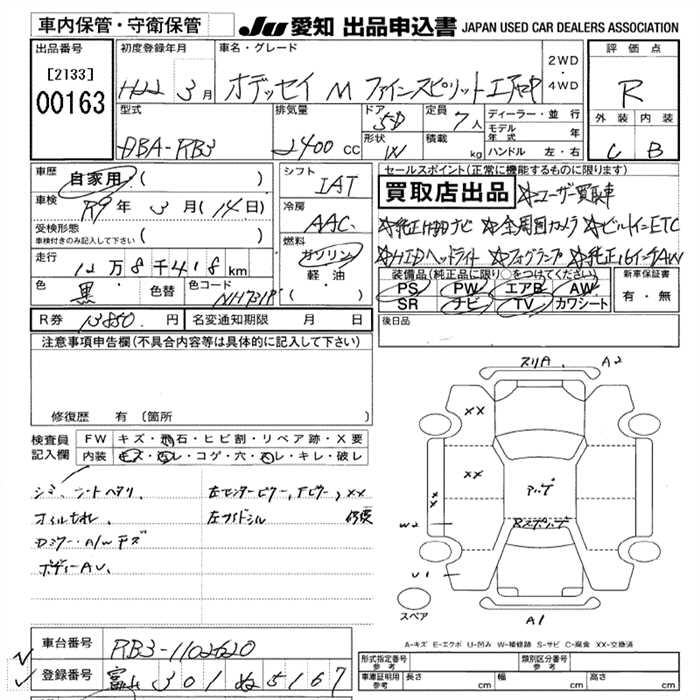 車内保管・守衛保管
JU 愛知 出品申込書 JAPAN USED CAR DEALERS ASSOCIATION
出品番号
[2133]
00163
初度登録年月
H22年 3月
車名・グレード
オデッセイ M ファインスピリットエアロ
2WD
・
4WD
評価点
R
型式
DBA-RB3
排気量
2400 CC
ドア
5D
形状
W
定員
7人
積載
kg
ディーラー・並行
モデル年式 年
ハンドル 左・右
外装 内装
C B
車歴
自家用 ( )
車検
R9年 3月 (14日)
受検形態
車検付きのみ記入して下さい ( )
走行
12万8千418km
色
黒
色替
色コード
NH731P
シフト
IAT
冷房
AAC
燃料
ガソリン
軽油
( )
セールスポイント(正常に機能するものに限ります)
買取店出品 ☆ユーザー買取車
☆純正HDDナビ ☆全周囲カメラ ☆ビルトインETC
☆HIDヘッドライト ☆フォグランプ ☆純正16インチAW
装備品(純正品に限り○をつけてください)
PS PW エアB AW
SR ナビ TV カワシート
新車保証書
有・無
後日品
R券 13850円
名変通知期限 月 日
注意事項申告欄(不具合内容等は具体的に記入して下さい)
修復歴 有 (箇所
検査員
記入欄
FW キズ・飛石・ヒビ割・リペア跡・X要
内装 キズ・汚レ・コゲ・穴・スレ・キレ・破レ
シミ、シートヘタリ、
オイルもれ、
Dミラー・A/Wキズ
ボディーAU、
左センターピラー、Fピラー、XX
左サイドシル 修復
スリA、 A2
XX
XX
XX
W2
U1
アップ
A1
スペア
A-キズ E-エクボ U-凹み W-補修跡 S-サビ C-腐食 XX-交換済
車台番号 RB3-1102620
登録番号 富山 301 ぬ 5167
形式指定番号
参考
類別区分番号
参考
車庫証明用
参考
長さ cm
幅 cm
高さ cm